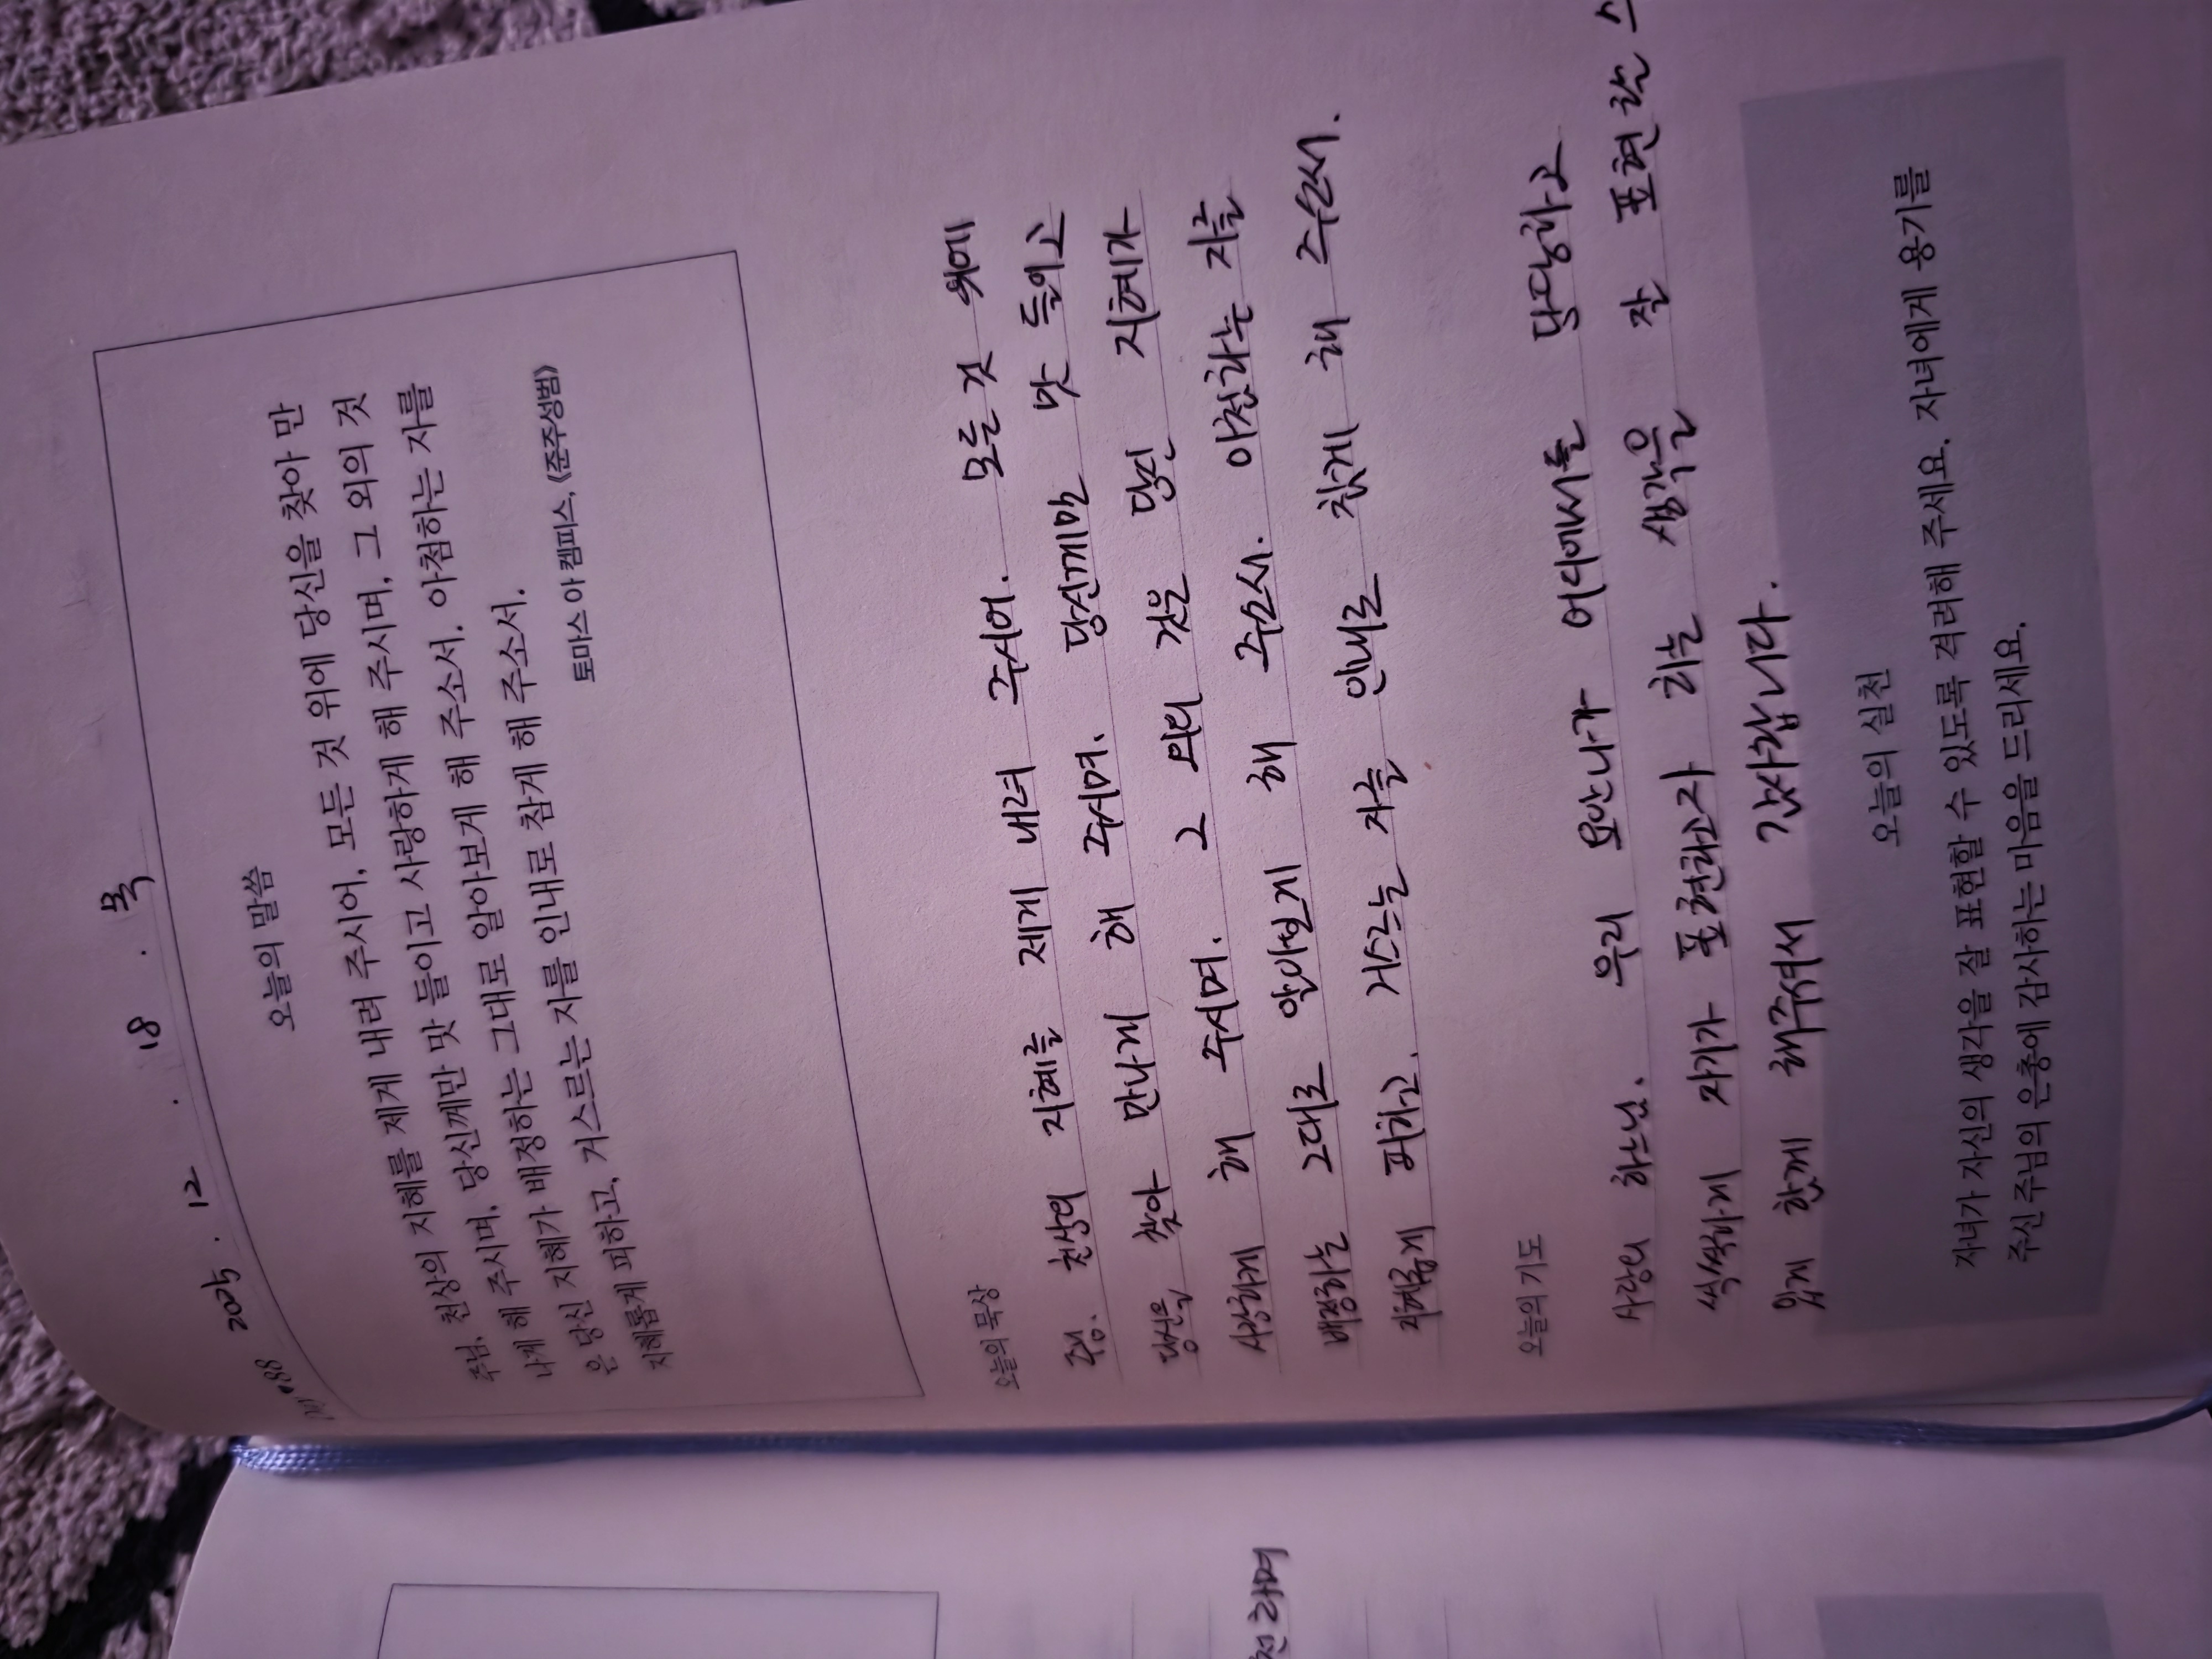 Day 88 2025 . 12 . 18 . 목
오늘의 말씀
주님, 천상의 지혜를 제게 내려 주시어, 모든 것 위에 당신을 찾아 만
나게 해 주시며, 당신께만 맛 들이고 사랑하게 해 주시며, 그 외의 것
은 당신 지혜가 배정하는 그대로 알아보게 해 주소서. 아첨하는 자를
지혜롭게 피하고, 거스르는 자를 인내로 참게 해 주소서.
토마스 아 켐피스, 《준주성범》
오늘의 묵상
주님. 천상의 지혜를 제게 내려 주시어. 모든 것 위에
당신을 찾아 만나게 해 주시며. 당신께만 맛 들이고
사랑하게 해 주시며. 그 외의 것은 당신 지혜가
배정하는 그대로 알아보게 해 주소서. 아첨하는 자를
지혜롭게 피하고. 거스르는 자를 인내로 참게 해 주소서.
오늘의 기도
사랑의 하느님. 우리 요안나가 어디에서든 당당하고
씩씩하게 자기가 표현하고자 하는 생각을 잘 표현할 수
있게 함께 해주셔서 감사합니다.
오늘의 실천
자녀가 자신의 생각을 잘 표현할 수 있도록 격려해 주세요. 자녀에게 용기를
주신 주님의 은총에 감사하는 마음을 드리세요.